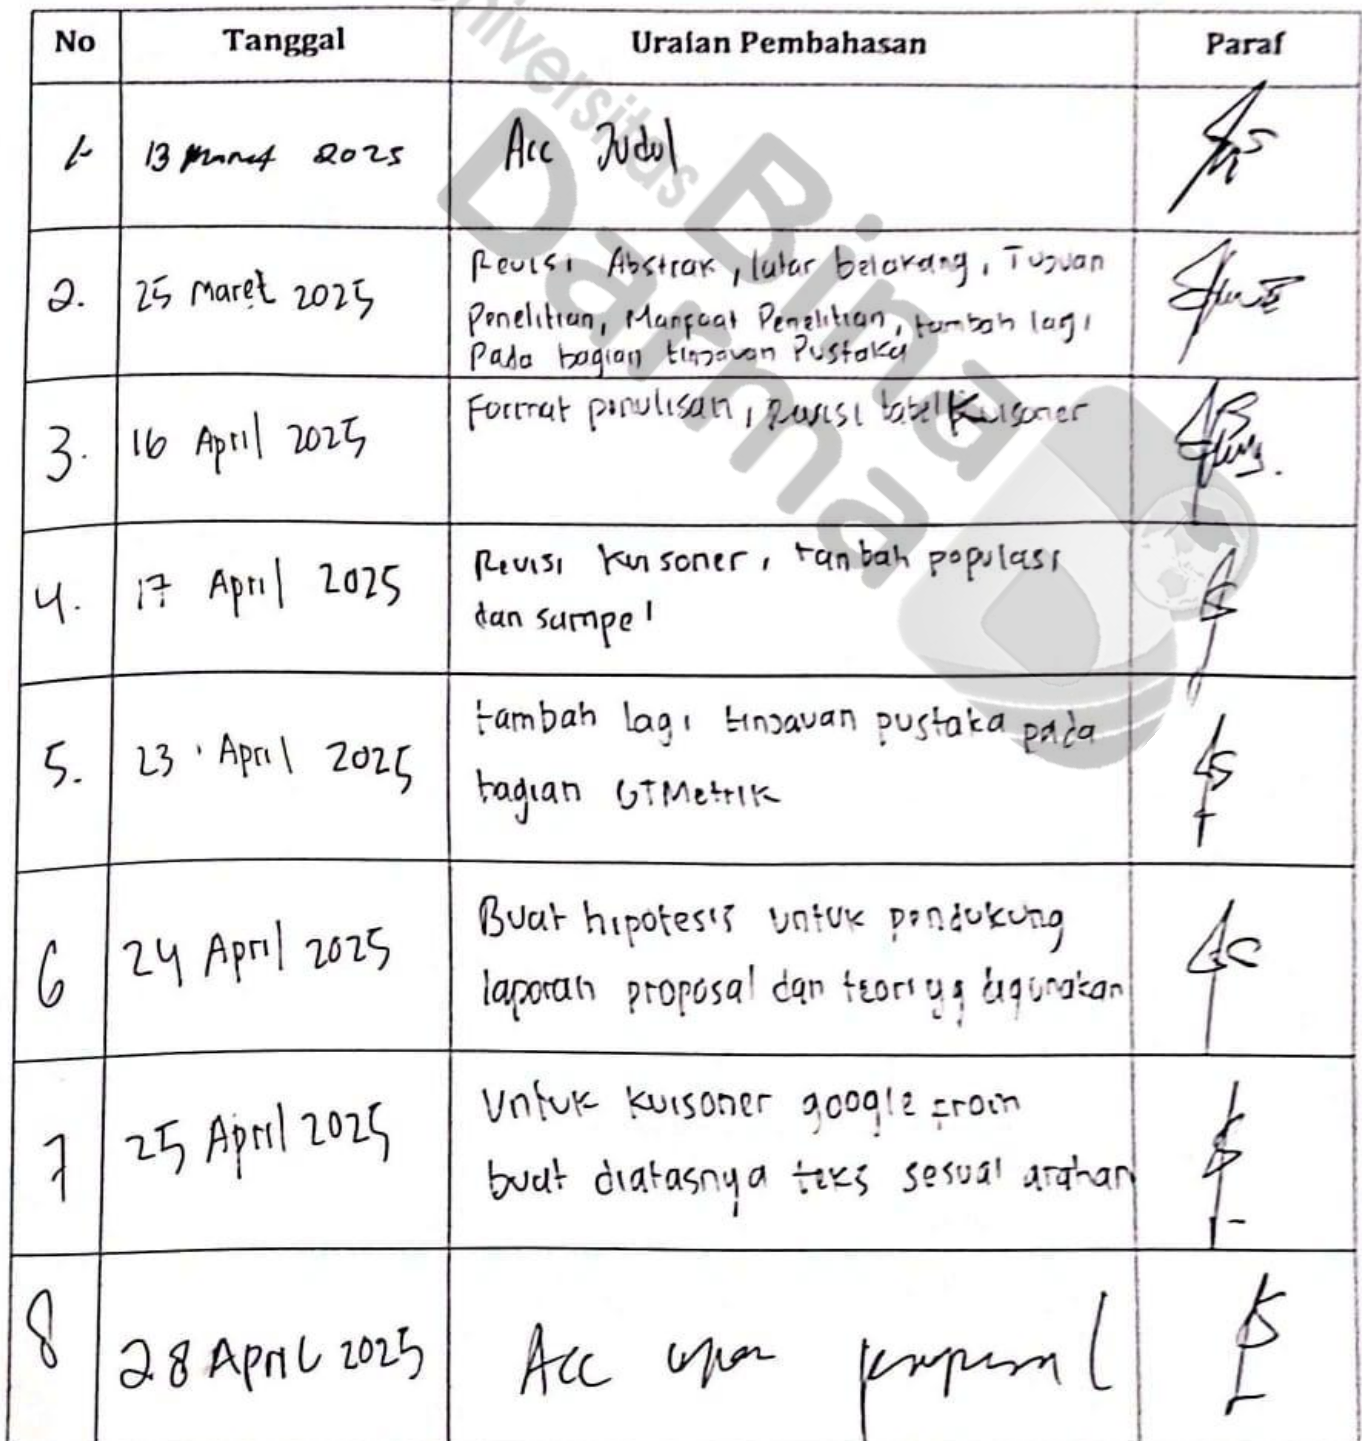 No Tanggal Uraian Pembahasan Paraf
Universitas
Bina
Darma
1. 13 Maret 2025 Acc Judul
2. 25 Maret 2025 Revisi Abstrak, latar belakang, Tujuan
Penelitian, Manfaat Penelitian, tambah lagi
Pada bagian tinjauan Pustaka
3. 16 April 2025 Format penulisan, Revisi tabel Kuisoner
4. 17 April 2025 Revisi Kuisoner, tambah populasi
dan sampel
5. 23 April 2025 tambah lagi tinjauan pustaka pada
bagian GTMetrik
6 24 April 2025 Buat hipotesis untuk pendukung
laporan proposal dan teori yg digunakan
7 25 April 2025 Untuk kuisoner google from
buat diatasnya teks sesuai arahan
8 28 April 2025 Acc ujian proposal